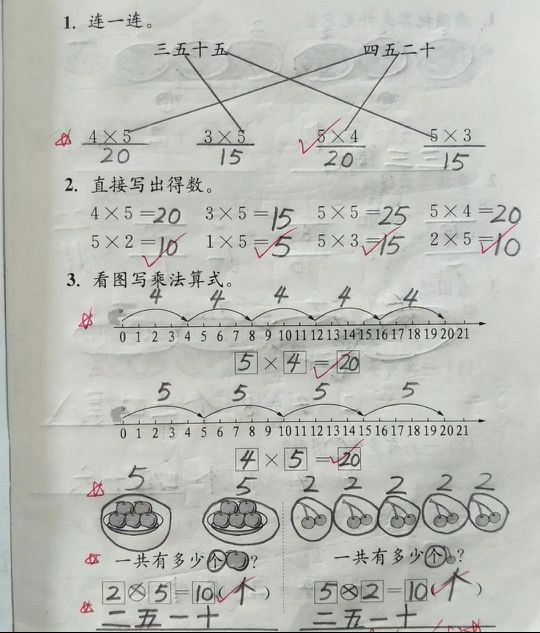 1. 连一连。
三五十五 四五二十
4×5 3×5 5×4 5×3
20 15 20 15
2. 直接写出得数。
4×5=20 3×5=15 5×5=25 5×4=20
5×2=10 1×5=5 5×3=15 2×5=10
3. 看图写乘法算式。
4 4 4 4 4
0 1 2 3 4 5 6 7 8 9 10 11 12 13 14 15 16 17 18 19 20 21
5×4=20
5 5 5 5
0 1 2 3 4 5 6 7 8 9 10 11 12 13 14 15 16 17 18 19 20 21
4×5=20
5 5 2 2 2 2 2
一共有多少个? 一共有多少个?
2×5=10(个) 5×2=10(个)
二五一十 二五一十